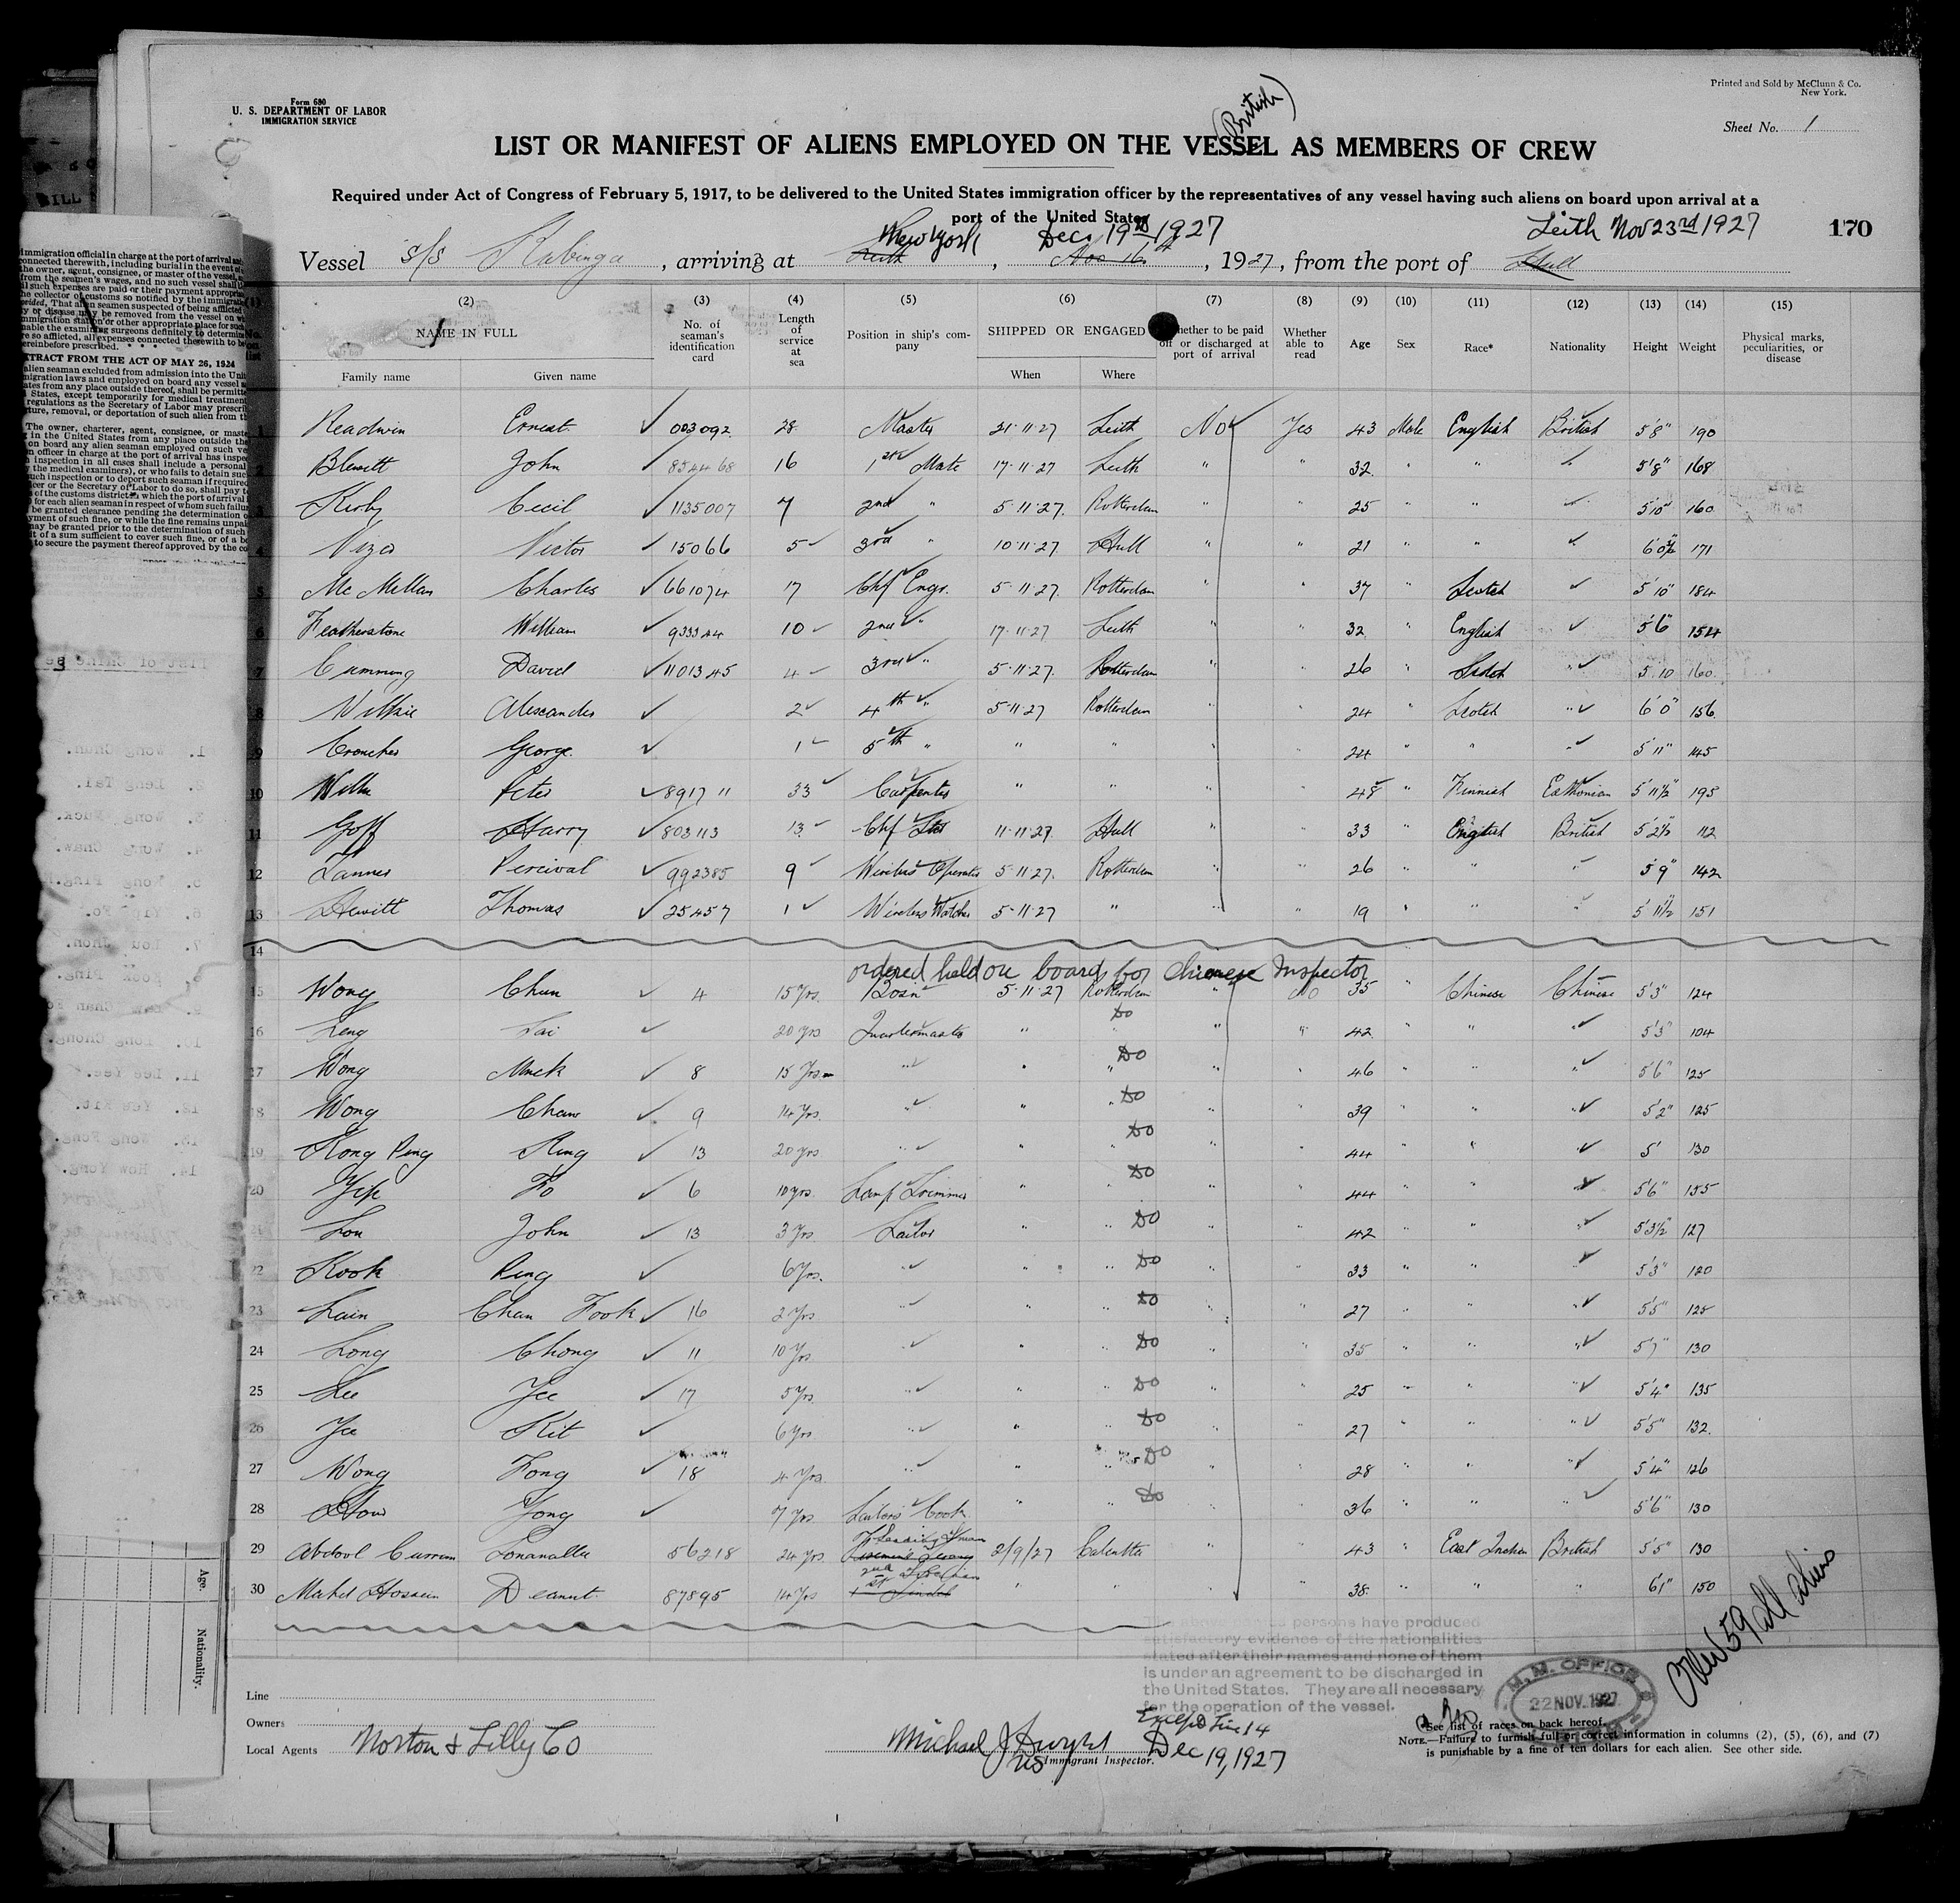 Form 680
U. S. DEPARTMENT OF LABOR
IMMIGRATION SERVICE
Printed and Sold by McClunn & Co.
New York.
Sheet No. 1
(British)
LIST OR MANIFEST OF ALIENS EMPLOYED ON THE VESSEL AS MEMBERS OF CREW
Required under Act of Congress of February 5, 1917, to be delivered to the United States immigration officer by the representatives of any vessel having such aliens on board upon arrival at a
port of the United States
New York Dec 19th 1927 Leith Nov 23rd 1927 170
Vessel S/S Kabinga, arriving at Leith, Nov 16th, 1927, from the port of Hull
(1) (2) (3) (4) (5) (6) (7) (8) (9) (10) (11) (12) (13) (14) (15)
NAME IN FULL No. of seaman's identification card Length of service at sea Position in ship's company SHIPPED OR ENGAGED Whether to be paid off or discharged at port of arrival Whether able to read Age Sex Race* Nationality Height Weight Physical marks, peculiarities, or disease
Family name Given name When Where
1 Readwin Ernest 003092 28 Master 21-11-27 Leith No Yes 43 Male English British 5'8" 190
2 Blewitt John 854468 16 1st Mate 17-11-27 Leith " " 32 " " " 5'8" 168
3 Kirby Cecil 1135007 7 2nd " 5-11-27 Rotterdam " " 25 " " " 5'10" 160
4 Victor 15066 5 3rd " 10-11-27 Hull " " 21 " " 171
5 Mc Millan Charles 661074 17 Chf Engr. 5-11-27 Rotterdam " " 37 " Scotch 5'10" 184
6 Featherstone William 933344 10 2nd " 17-11-27 Leith " " 32 " English 5'6" 154
7 Cumming David 1101345 4 3rd " 5-11-27 Rotterdam " " 26 " Scotch " 5 10 160
8 Wilkie Alexander 2 4th " 5-11-27 Rotterdam " " 24 " Scotch " 6'0" 156
9 Croucher George 1 5th " " " " " 24 " " " 5'11" 145
10 Peter 891711 33 Carpenter " " " " 48 " Finnish Esthonian 5'11½ 195
11 Goff Harry 803113 13 Chf Std 11-11-27 Hull " " 33 " English British 5'2½ 112
12 Tanner Percival 992385 9 Wireless Operator 5-11-27 Rotterdam " " 26 " " " 5'9" 142
13 Hewitt Thomas 25457 1 Wireless Watcher 5-11-27 " " " 19 " " " 5'11½ 151
14
ordered held on board for Chinese Inspector
15 Wong Chun 4 15 Yrs. Bosn 5-11-27 Rotterdam " No 35 " Chinese Chinese 5'3" 124
16 Leng Tai 20 yrs Quartermaster " Do " " 42 " " " 5'3" 104
17 Wong Muck 8 15 Yrs. " " " Do " " 46 " " " 5'6" 125
18 Wong Chaw 9 14 Yrs. " " " Do " " 39 " " " 5'2" 125
19 Kong Ping Ring 13 20 yrs " " " Do " " 44 " " 5' 130
20 Yip Fo 6 10 yrs. Lamp Trimmer " " Do " " 44 " " 5'6" 155
21 Lou John 13 3 Yrs Sailor " " Do " " 42 " " " 5'3½" 127
22 Kook Ping 6 Yrs. " " " Do " " 33 " " " 5'3" 120
23 Lain Chan Fook 16 2 Yrs " " " Do " " 27 " " " 5'5" 125
24 Long Chong 11 10 Yrs " " " Do " " 35 " " " 5'7" 130
25 Lee Yee 17 5 Yrs. " " " Do " " 25 " " " 5'4" 135
26 Yee Kit 6 yrs. " " " Do " " 27 " " " 5'5" 132
27 Wong Fong 18 4 Yrs. " " " Do " " 28 " " " 5'4" 126
28 How Yong 7 Yrs Sailors Cook " " Do " " 36 " " " 5'6" 130
29 Abdool Curram 56218 24 yrs. 2/9/27 Calcutta " " 43 " East Indian British 5'5" 130
30 Hossein 87895 14 Yrs " " " 38 " " " 6'1" 150
The above named persons have produced
satisfactory evidence of the nationalities
stated after their names and none of them
is under an agreement to be discharged in
the United States. They are all necessary
for the operation of the vessel.
Except Line 14
Crew 59 all aliens
M. M. OFFICE
22 NOV. 1927
Line
Owners
Local Agents Norton & Lilly Co
Michael J Dwyer Dec 19, 1927
US Immigrant Inspector.
*See list of races on back hereof.
NOTE.—Failure to furnish full or correct information in columns (2), (5), (6), and (7)
is punishable by a fine of ten dollars for each alien. See other side.
EXTRACT FROM THE ACT OF MAY 26, 1924
Age.
Nationality.